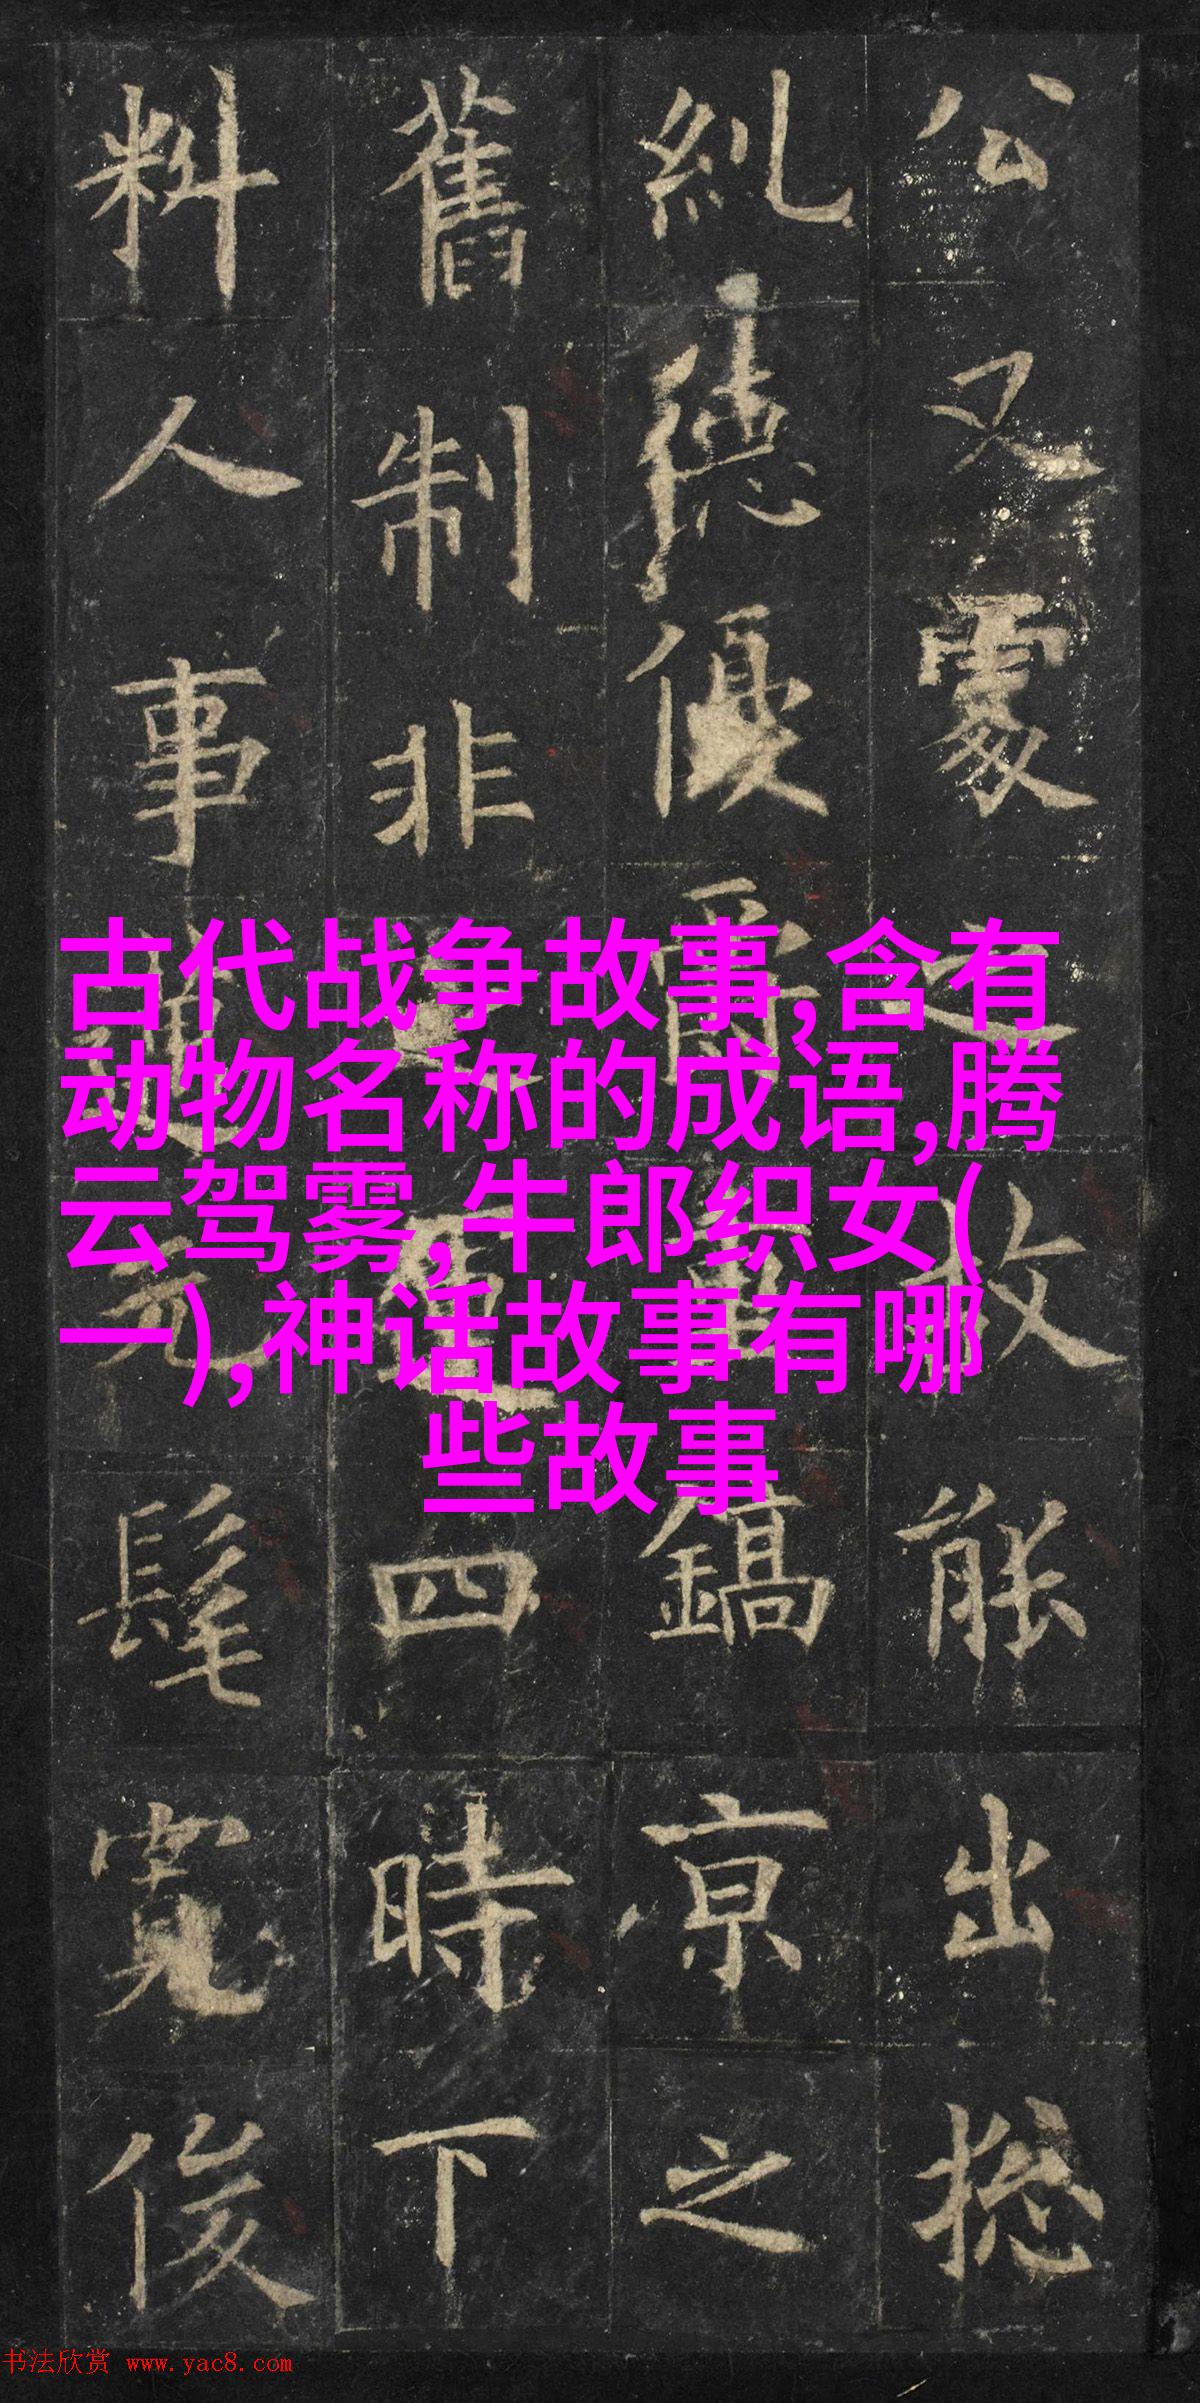 公又之能出揔
糺德優爵鎬京之
舊制非四時下
料人事髦寛俊
古代战争故事,含有
动物名称的成语,腾
云驾雾,牛郎织女(
一),神话故事有哪
些故事
书法欣赏 www.yac8.com